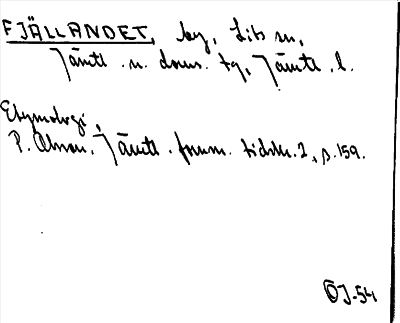 FJÄLLANDET, by, Lits sn,
Jämtl. n. doms. tg, Jämtl. l.
Etymologi,
P. Olsson. Jämtl. fornm. tidskr. 2, s. 159.
ÖJ-54